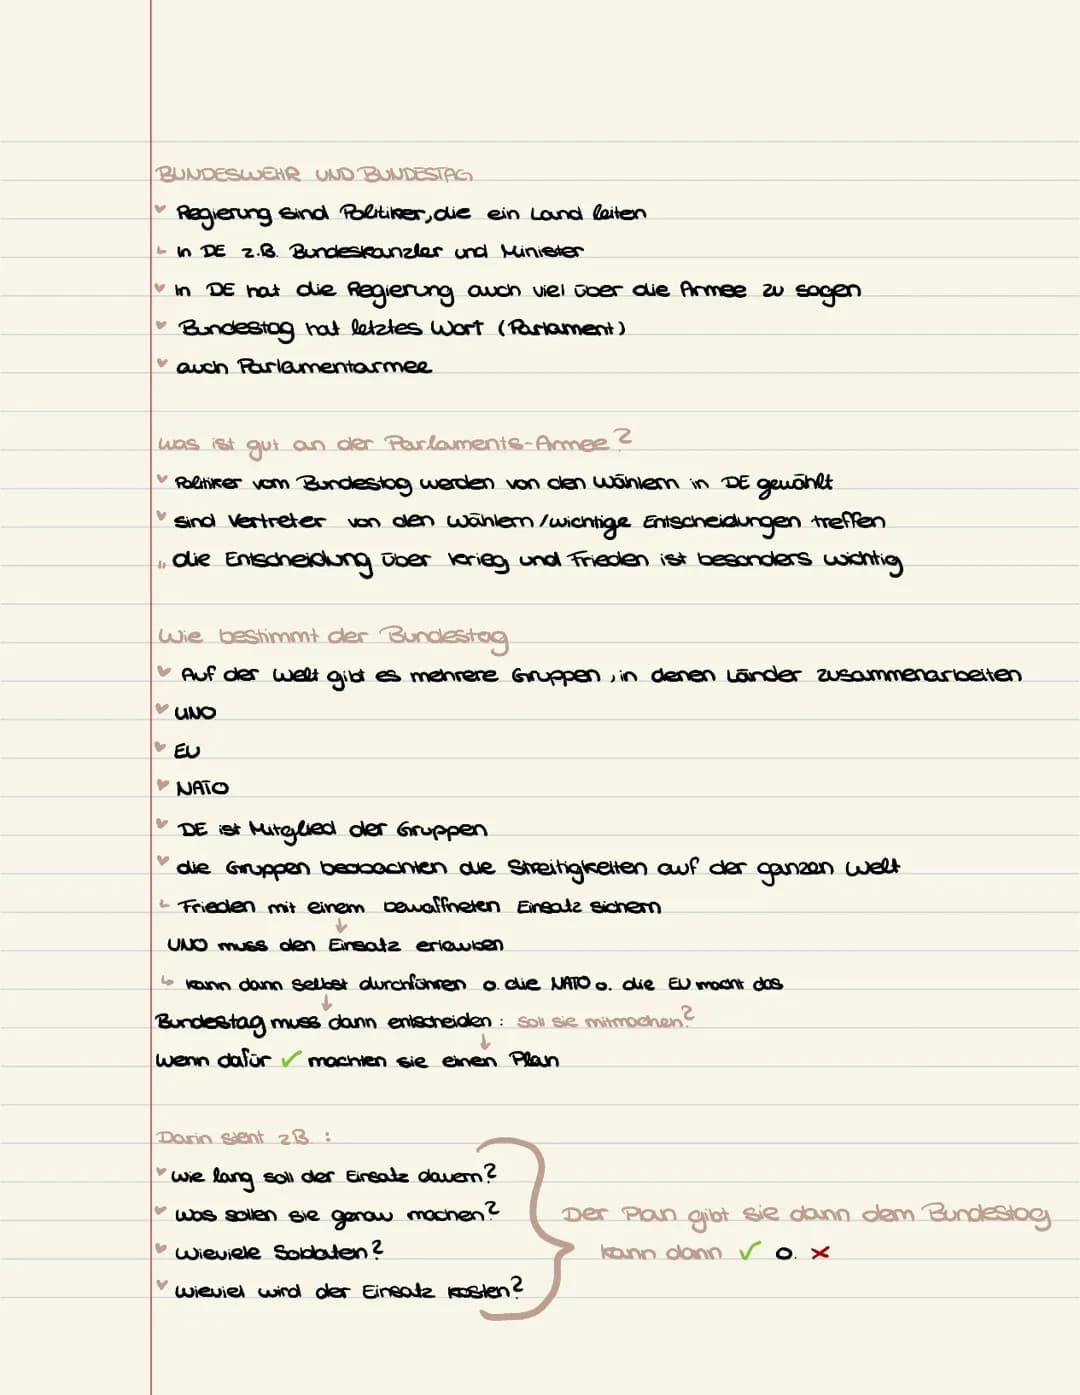 BUNDESWEHR UND BUNDESTAG
Regierung sind Politiker, die ein Land leiten
in DE z.B. Bundeskanzler und Minister
in DE hat die Regierung auch viel über die Armee zu sagen
Bundestag hat letztes Wort (Parlament)
auch Parlamentarmee
was ist gut an der Parlaments-Armee?
Politiker vom Bundestag werden von den Wählern in DE gewählt
sind Vertreter von den Wählern / wichtige Entscheidungen treffen
die Entscheidung über Krieg und Frieden ist besonders wichtig
Wie bestimmt der Bundestag
Auf der Welt gibt es mehrere Gruppen, in denen Länder zusammenarbeiten
UNO
EU
NATO
DE ist Mitglied der Gruppen
die Gruppen beobachten die Streitigkeiten auf der ganzen Welt
Frieden mit einem bewaffneten Einsatz sichern
↓
UNO muss den Einsatz erlauben
↳ kann dann selbst durchführen o. die NATO o. die EU macht das
↓
Bundestag muss dann entscheiden: soll sie mitmachen?
↓
Wenn dafür ✓ machten sie einen Plan
Darin steht z.B.:
wie lang soll der Einsatz dauern?
was sollen sie genau machen?
wieviele Soldaten?
wieviel wird der Einsatz kosten?
Der Plan gibt sie dann dem Bundestag
kann dann ✓ o. ✗